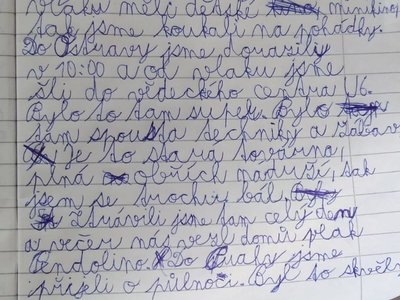 vlaku měli dětské kino, minikino,
tak jsme koukali na pohádky.
Do Ostravy jsme dorazily
v 10:00 a od vlaku jsme
šli do vědeckého centra U6.
Bylo to tam super. Bylo
tam spousta techniky a zábav
Je to stará továrna,
plná obřích nádrží, tak
jsem se trochu bál.
Ztrávili jsme tam celý den
a večer nás vezl domů vlak
Pendolino. Do Prahy jsme
přijeli o půlnoci. Byl to skvěl